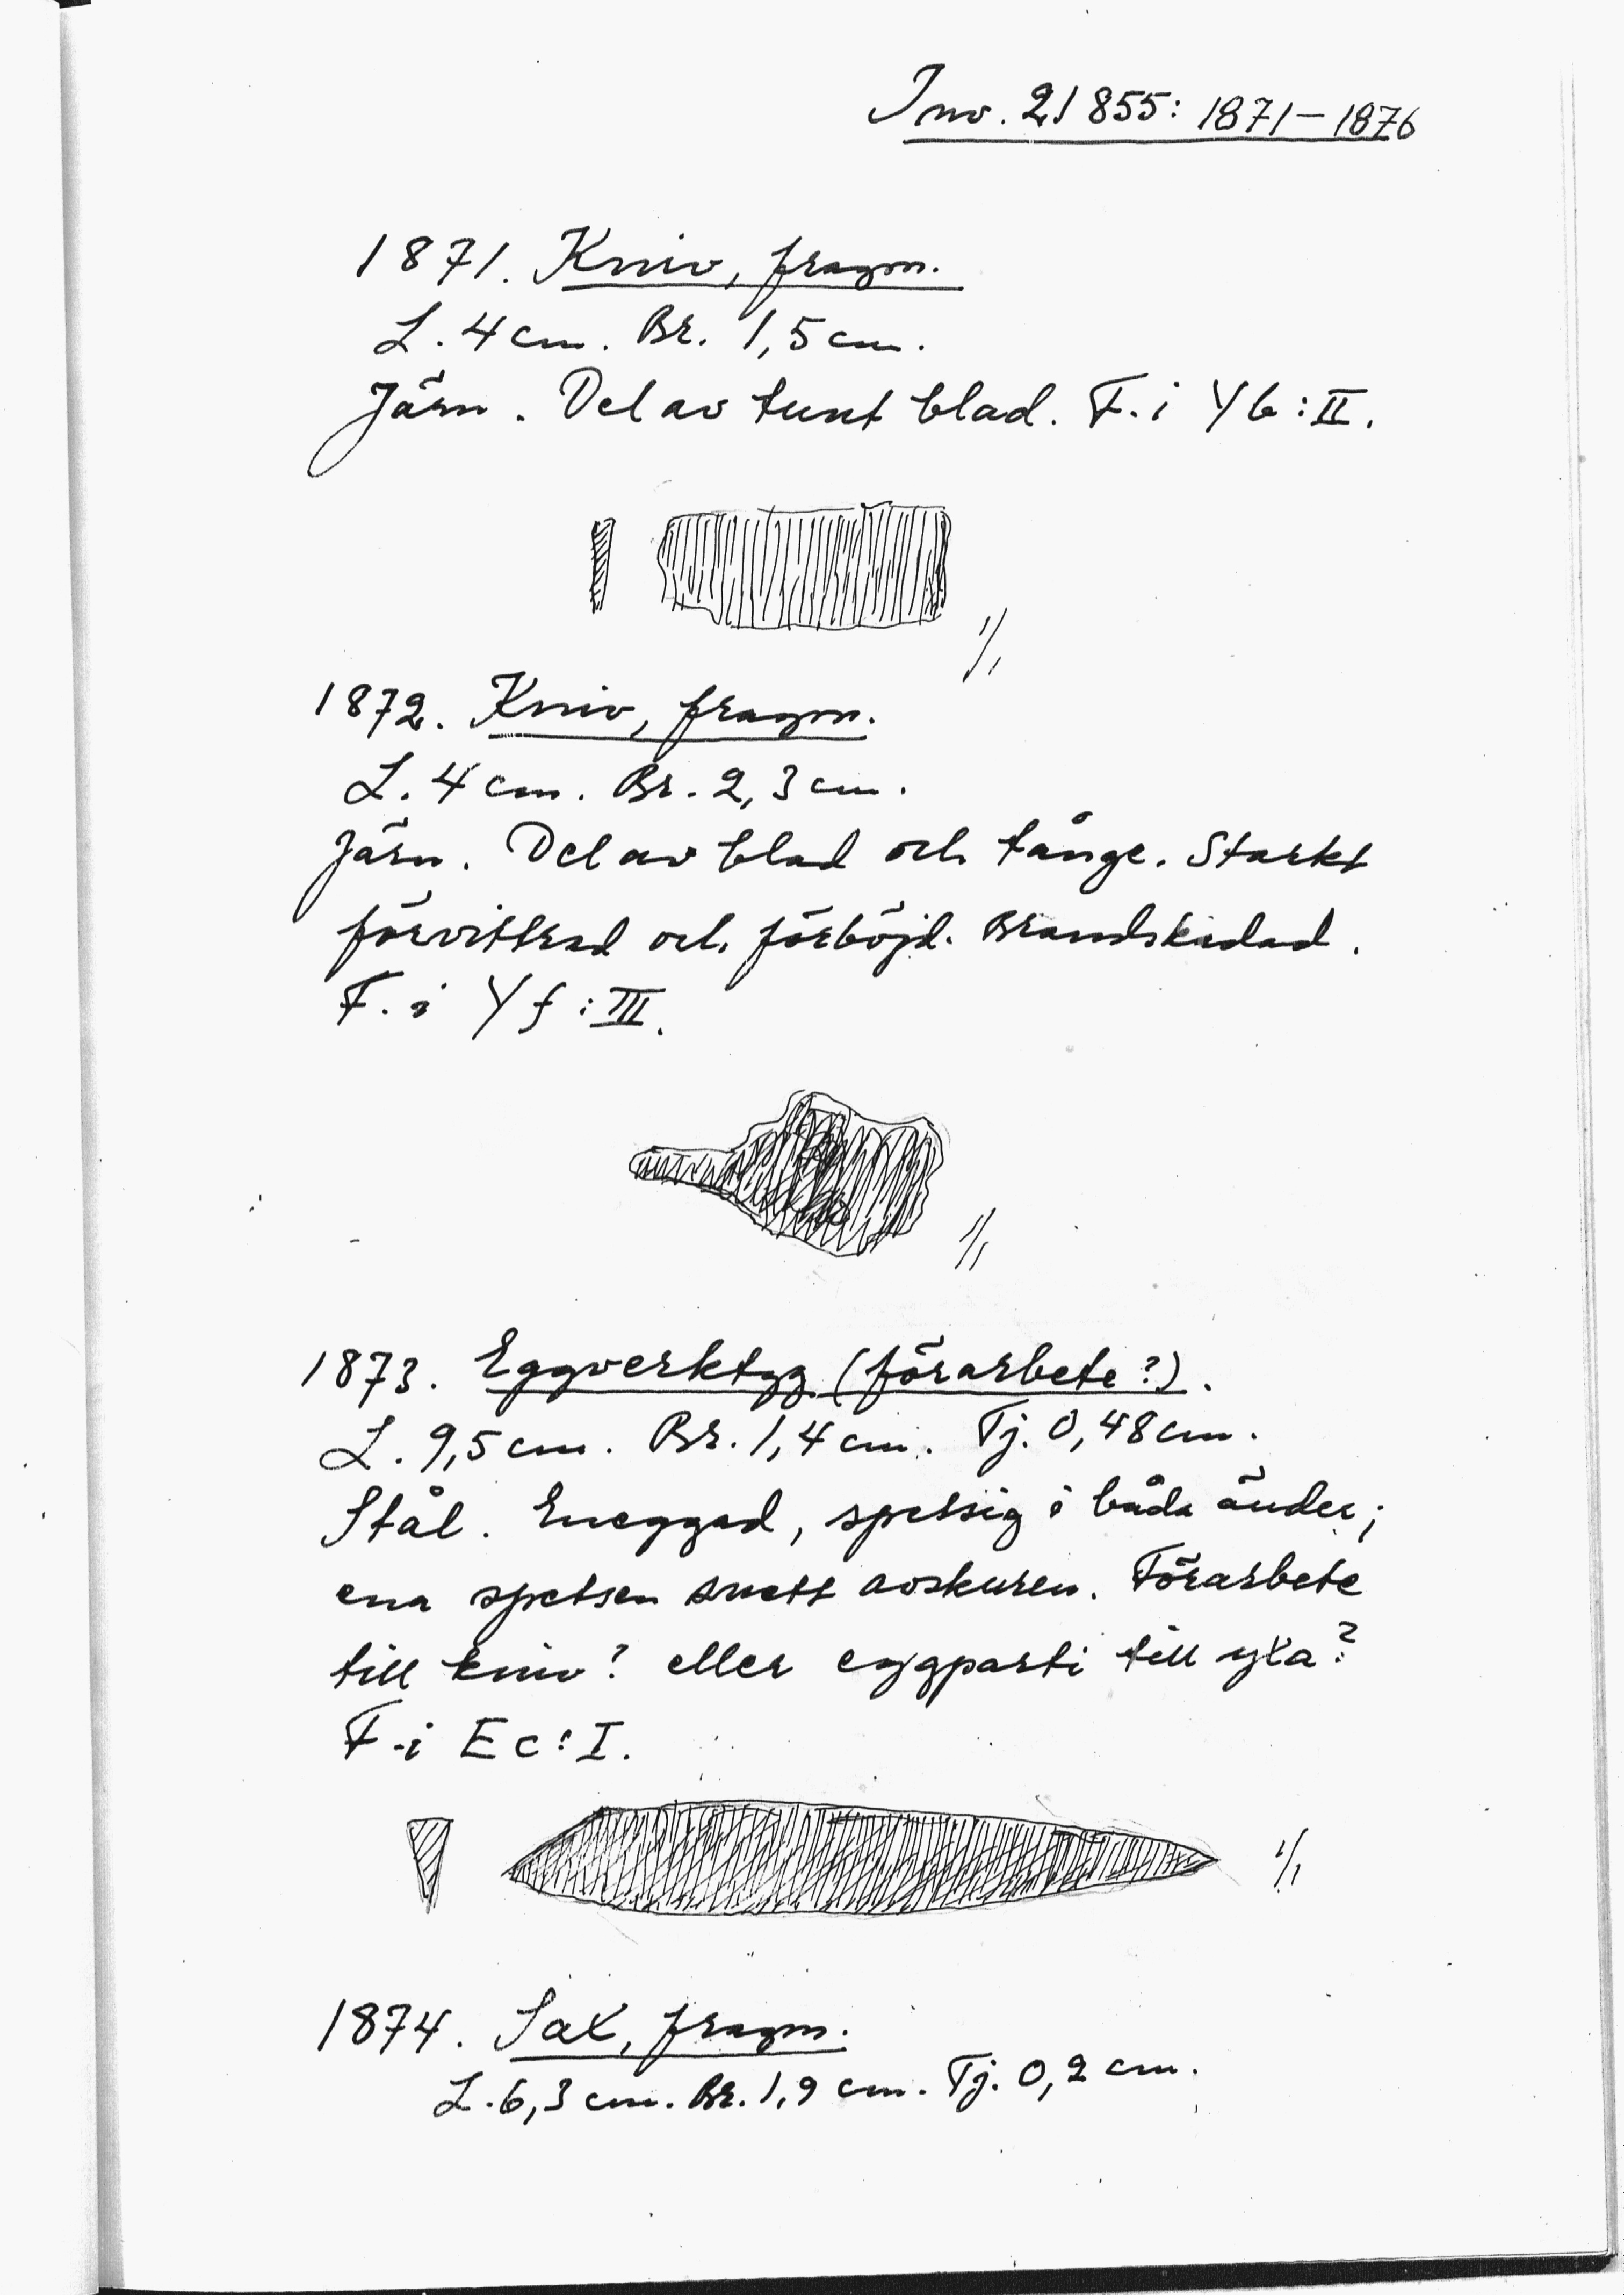 Inv. 21855: 1871-1876
1871. Kniv, fragm.
L. 4 cm. Br. 1,5 cm.
Järn. Del av tunt blad. F. i Yb:II.
1/1
1872. Kniv, fragm.
L. 4 cm. Br. 2,3 cm.
Järn. Del av blad och tånge. Starkt
förvittrad och förböjd. Brandskadad.
F. i Yf:III.
1/1
1873. Eggverktyg (förarbete?).
L. 9,5 cm. Br. 1,4 cm. Tj. 0,48 cm.
Stål. Eneggad, spetsig i båda änder;
ena spetsen snett avskuren. Förarbete
till kniv? eller eggparti till yxa?
F. i Ec:I.
1/1
1874. Sax, fragm.
L. 6,3 cm. Br. 1,9 cm. Tj. 0,2 cm.